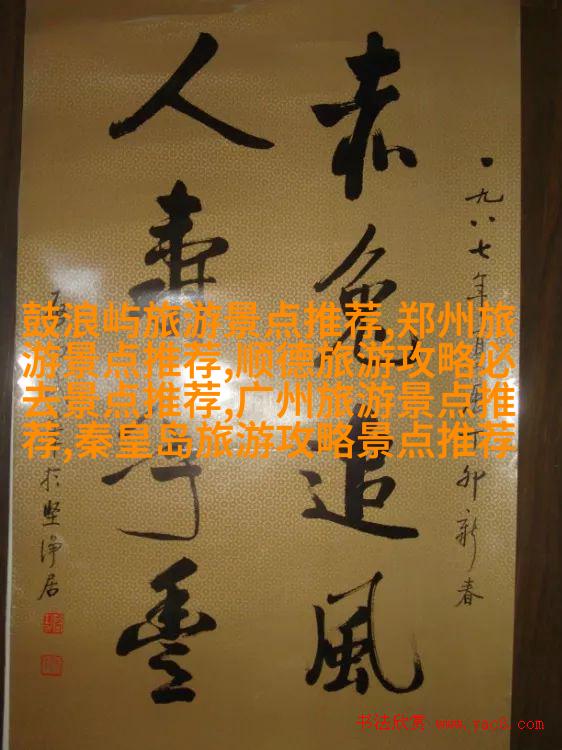 一九八七年
卯新春
赤兔追風
人壽年豐
於堅淨居
鼓浪屿旅游景点推荐,郑州旅
游景点推荐,顺德旅游攻略必
去景点推荐,广州旅游景点推
荐,秦皇岛旅游攻略景点推荐
书法欣赏 www.yac8.com